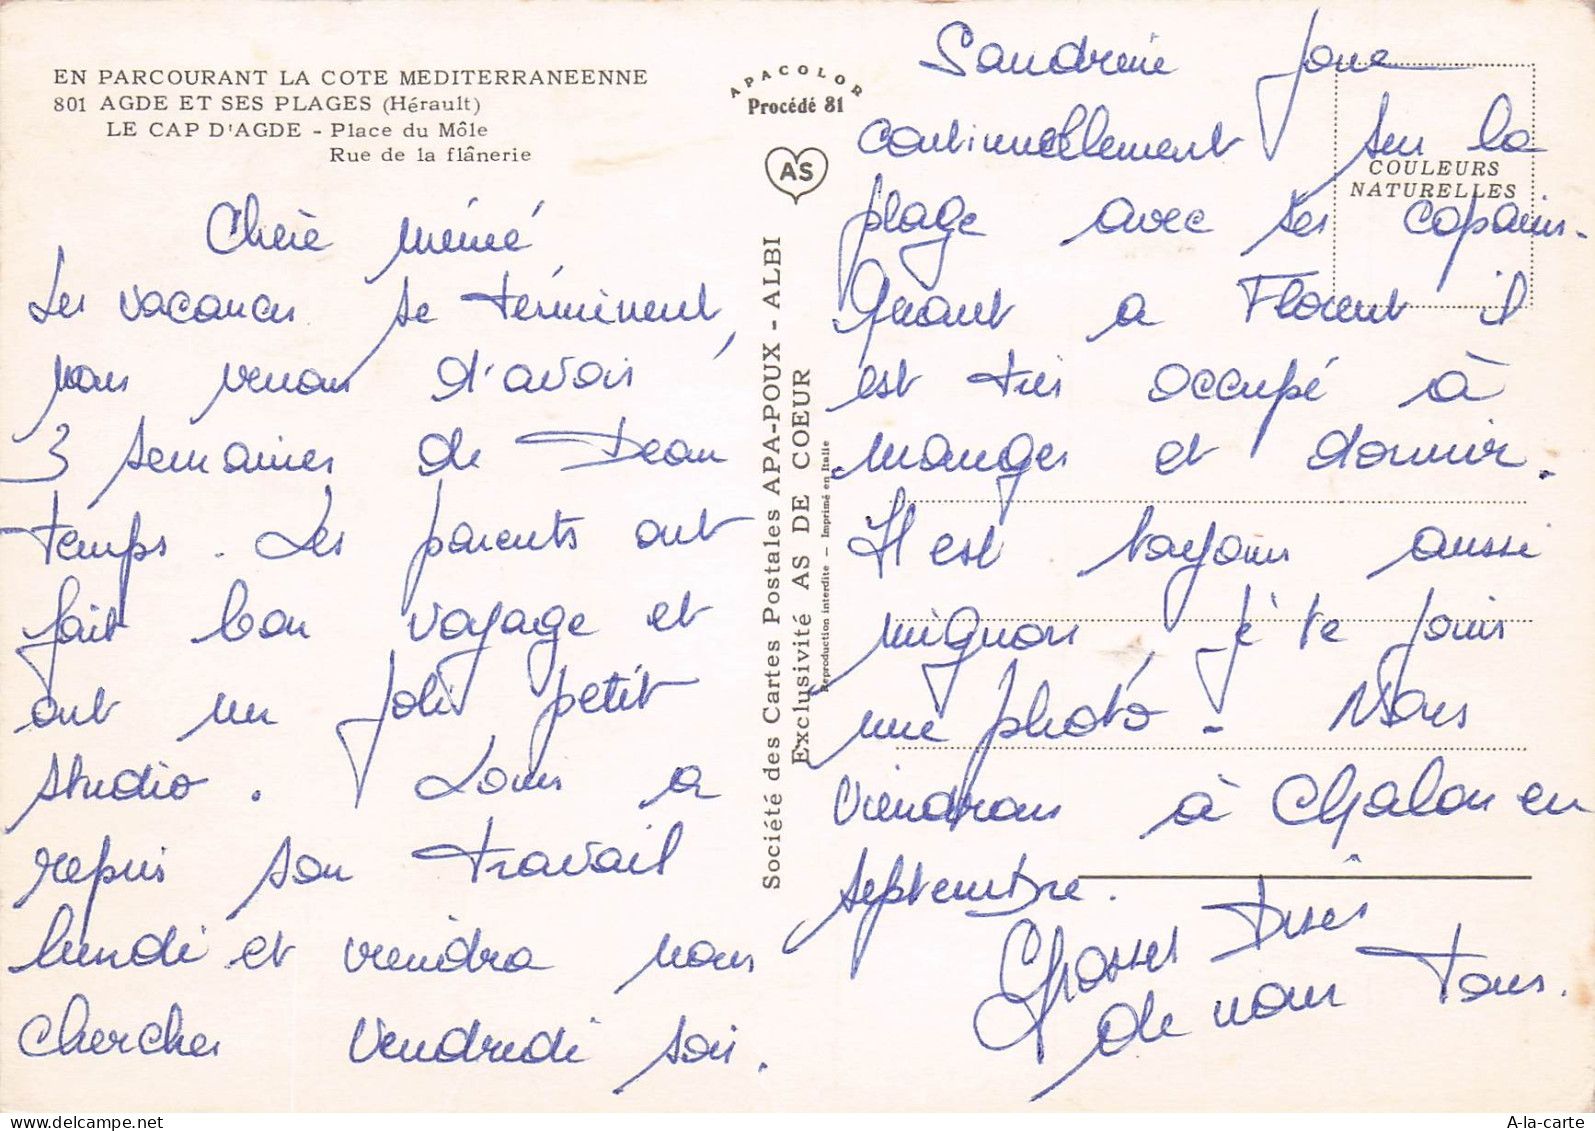 EN PARCOURANT LA COTE MEDITERRANEENNE
801 AGDE ET SES PLAGES (Hérault)
LE CAP D'AGDE - Place du Môle
Rue de la flânerie
Chère mémé
Les vacances se terminent,
nous venons d'avoir
3 semaines de beau
temps. Les parents ont
fait bon voyage et
ont un joli petit
studio. Louis a
repris son travail
lundi et viendra nous
chercher vendredi soir.
APACOLOR
Procédé 81
AS
Société des Cartes Postales APA-POUX - ALBI
Exclusivité AS DE COEUR
Reproduction interdite — Imprimé en Italie
COULEURS
NATURELLES
Sandrine joue
continuellement sur la
plage avec ses copains.
Quant a Florent il
est très occupé à
manger et dormir.
Il est toujours aussi
mignon, je te joins
une photo. Nous
viendrons à Chalon en
septembre.
Grosses bises
de nous tous.
A-la-carte